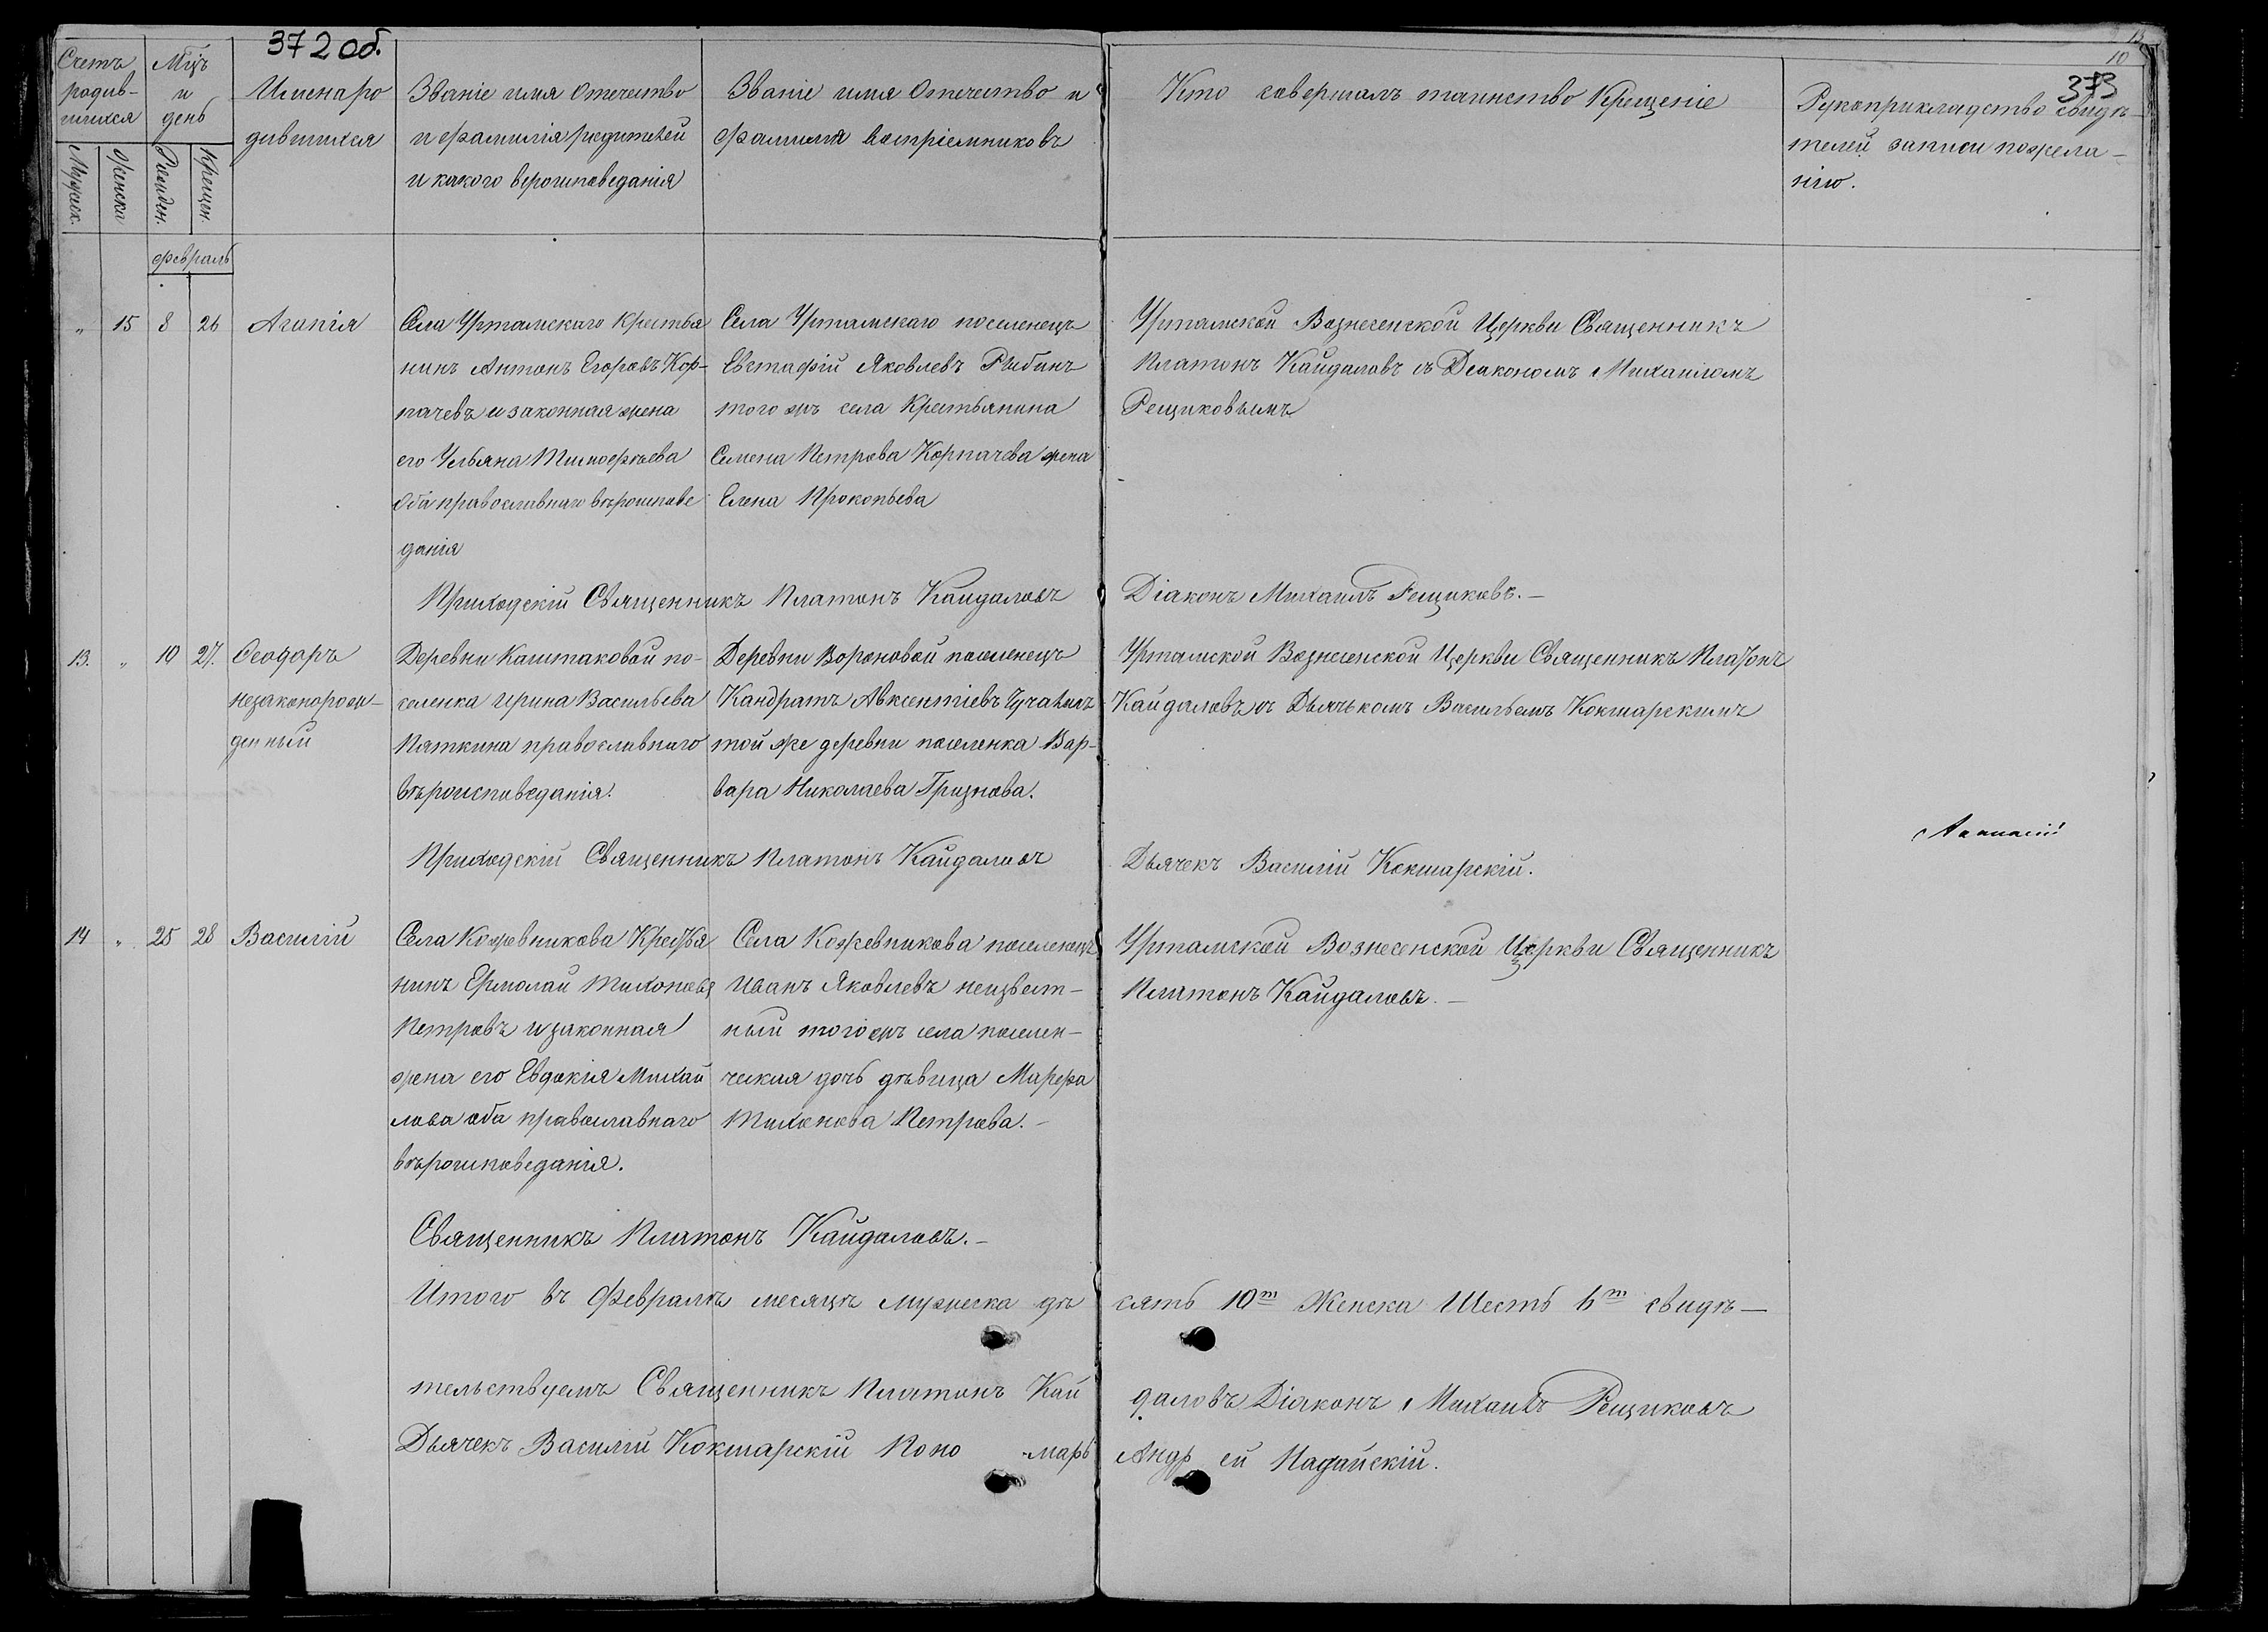 372 об.
13
10
373
Счетъ
родив-
шихся
Мцъ
и
день
Имена ро
дившихся
Званіе имя Отечество
и фамилія родителей
и какого вероисповеданія
Званіе имя Отечество и
фамилія воспріемниковъ
Кто совершалъ таинство Крещеніе
Рукоприкладство свидѣ-
телей записи по жела-
нію.
Мужеск.
Женска
Рожден.
Крещен.
Февраль
" 15 8 26 Агапія
Села Уртамскаго Крестья
нинъ Антонъ Егоровъ Кор-
пачевъ и законная жена
его Ульяна Тимофѣева
Оба православнаго вѣроиспове
данія
Села Уртамскаго поселенецъ
Евстафій Яковлевъ Рыбинъ
того жъ села Крестьянина
Семена Петрова Корпачева жена
Елена Прокопьева
Уртамской Вознесенской Церкви Священникъ
Платонъ Кайдаловъ съ Діакономъ Михаиломъ
Рещиковымъ
Приходскій Священникъ Платонъ Кайдаловъ
Діаконъ Михаилъ Рещиковъ.-
13. " 10 27. Феодоръ
незаконорож-
денный
Деревни Каштаковой по-
селенка Ирина Васильева
Пяткина православнаго
вѣроисповеданія.
Деревни Вороновой поселенецъ
Кандратъ Авксентіевъ
той же деревни поселенка Вар-
вара Николаева Гризнова.
Уртамской Вознесенской Церкви Священникъ Платонъ
Кайдаловъ съ Дьячькомъ Васильемъ Кокшарскимъ
Приходскій Священникъ Платонъ Кайдаловъ
Дьячекъ Василій Кокшарскій.
14 " 25 28 Василій
Села Кожевникова Крестья
нинъ Ермолай Тихоновъ
Петровъ и законная
жена его Евдокія Михай
лова оба православнаго
вѣроисповеданія.
Села Кожевникова поселенецъ
Иванъ Яковлевъ неизвест-
ный того жъ села поселен-
ческая дочь дѣвица Марфа
Тихонова Петрова.-
Уртамской Вознесенской Церкви Священникъ
Платонъ Кайдаловъ.-
Священникъ Платонъ Кайдаловъ.-
Итого въ Февралѣ месяцѣ мужеска де сять 10т Женска Шесть 6т свидѣ-
тельствуемъ Священникъ Платонъ Кай даловъ Діаконъ Михаилъ Рещиковъ
Дьячекъ Василій Кокшарскій Поно марь Андрей Надайскій.